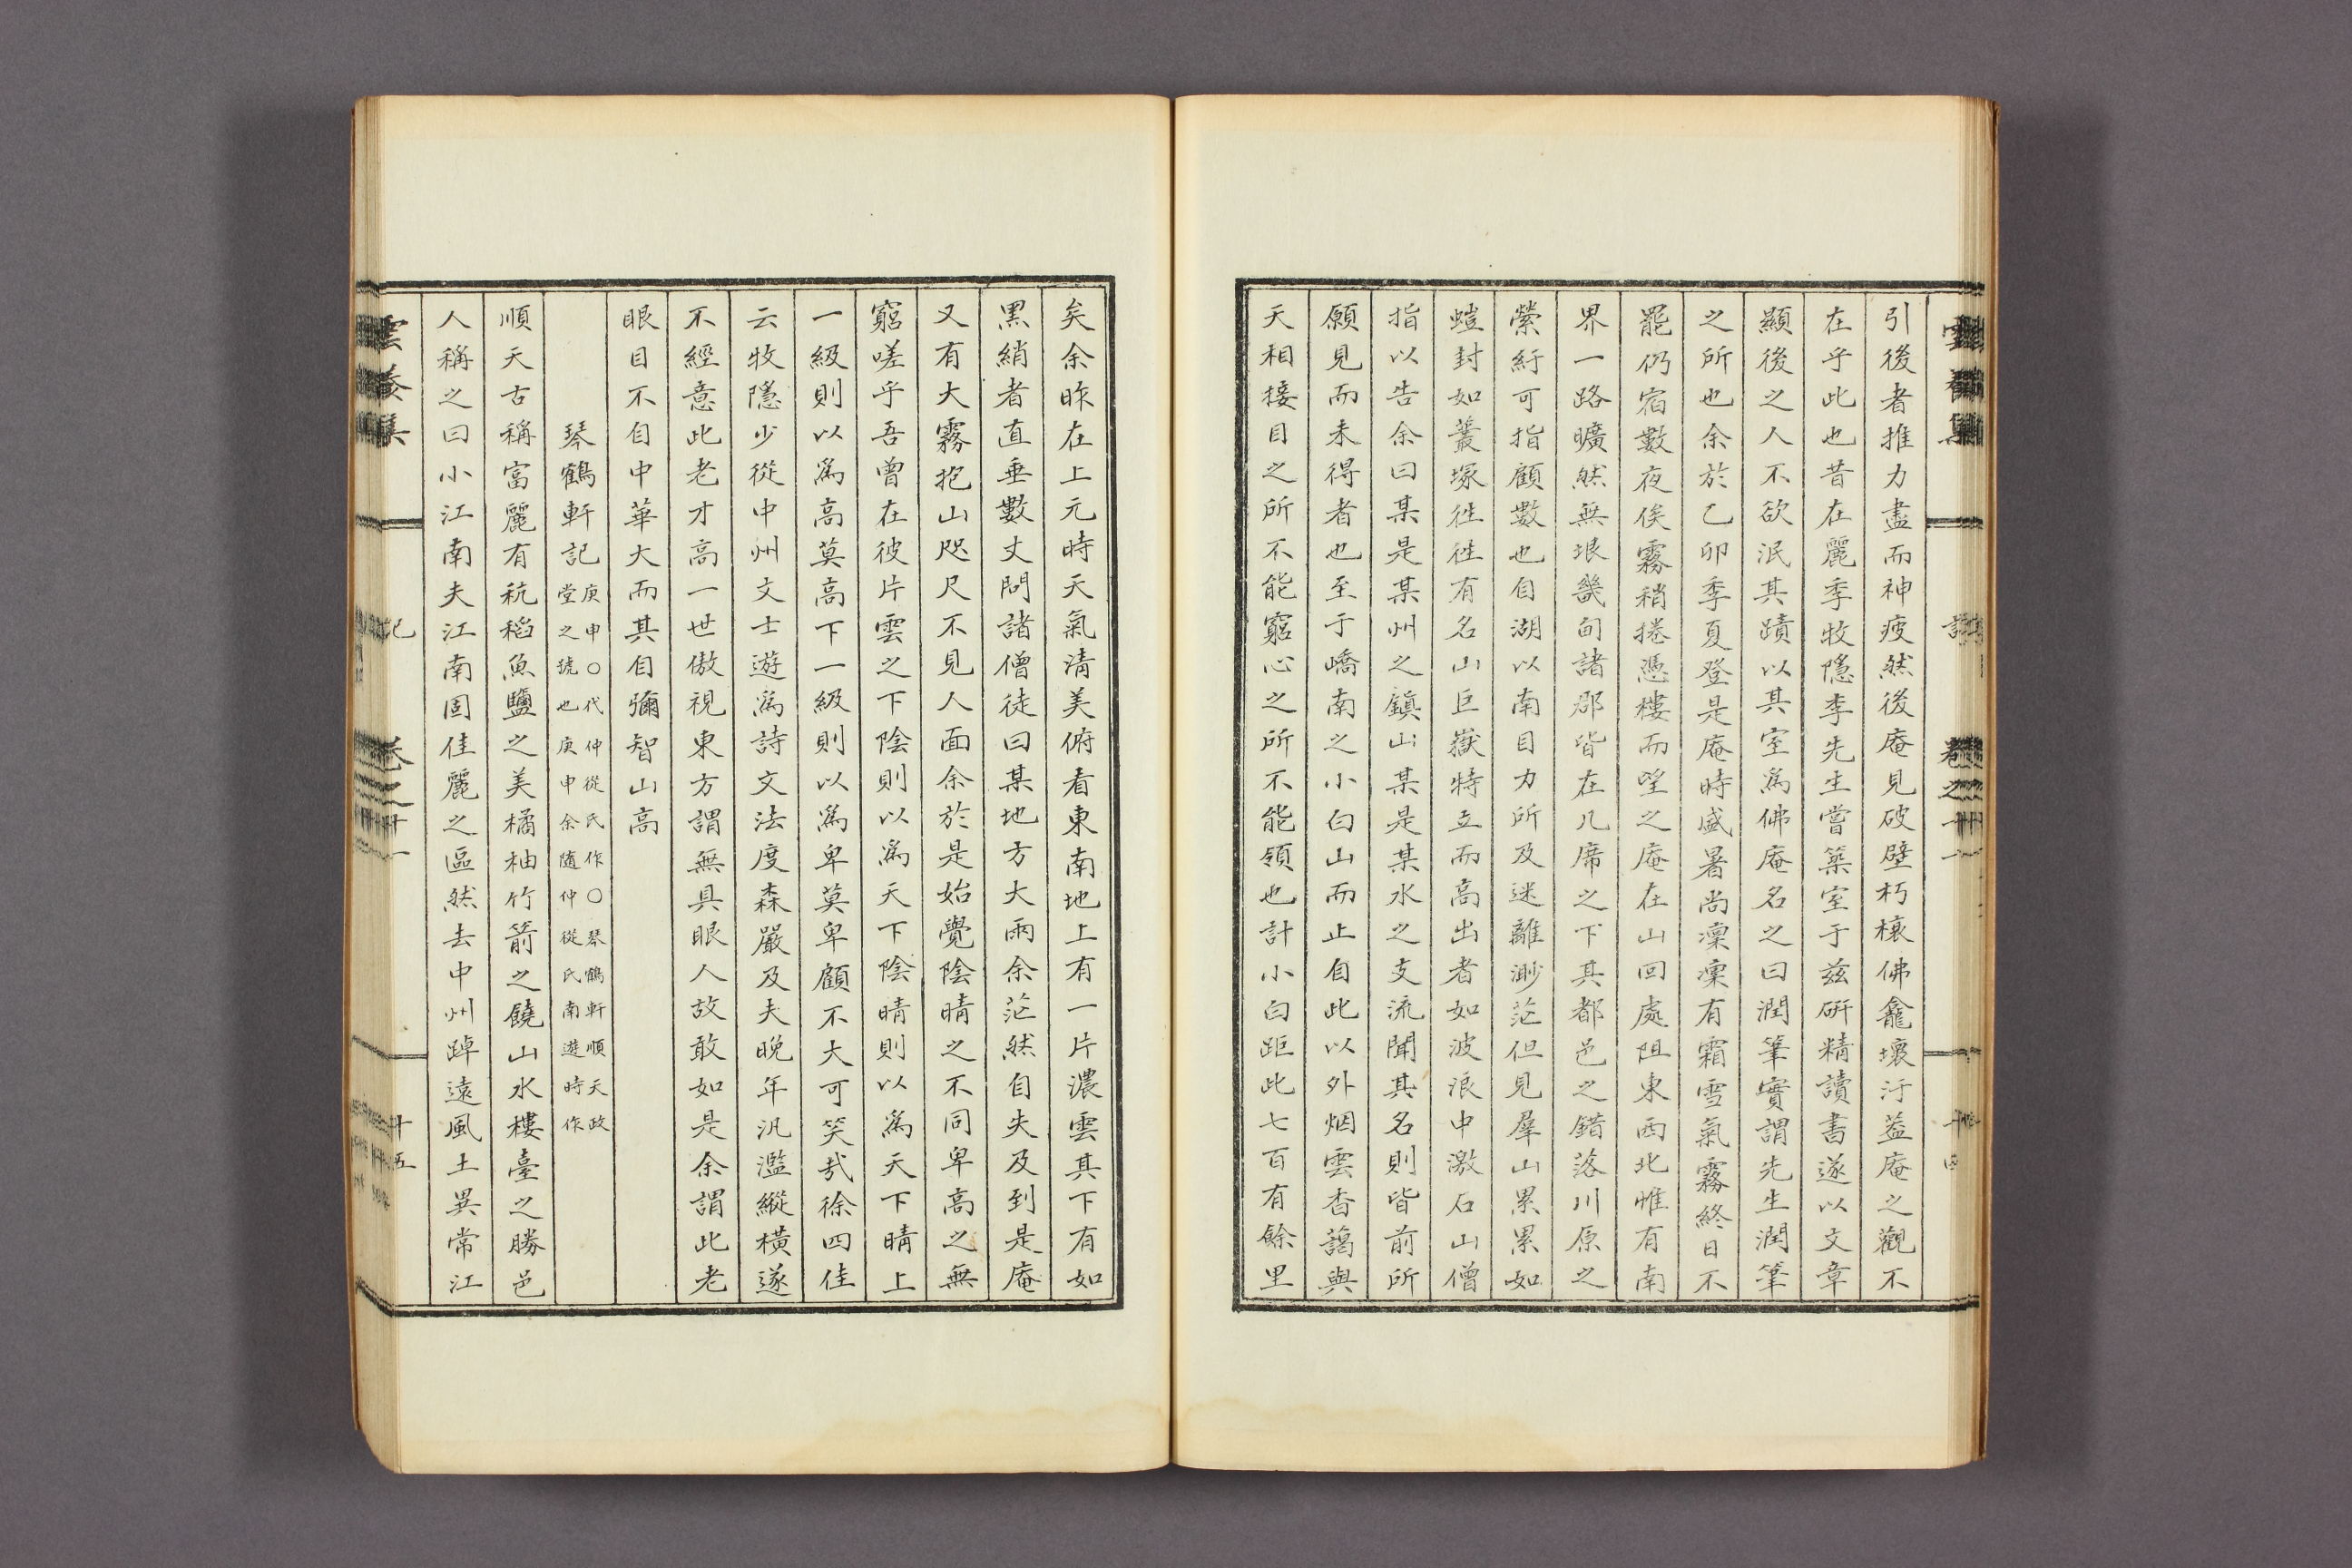 引後者推力盡而神疲然後庵見破壁朽榱佛龕壞汙葢庵之觀不
在乎此也昔在麗季牧隱李先生嘗築室于兹研精讀書遂以文章
顯後之人不欲泯其蹟以其室爲佛庵名之曰潤筆實謂先生潤筆
之所也余於乙卯季夏登是庵時盛暑尚凜凜有霜雪氣霧終日不
罷仍宿數夜俟霧稍捲憑樓而望之庵在山回處阻東西北惟有南
界一路曠然無垠畿甸諸郡皆在几席之下其都邑之錯落川原之
縈紆可指顧數也自湖以南目力所及迷離渺茫但見羣山累累如
螘封如叢塚徃徃有名山巨嶽特立而高出者如波浪中激石山僧
指以告余曰某是某州之鎭山某是某水之支流聞其名則皆前所
願見而未得者也至于嶠南之小白山而止自此以外烟雲杳藹與
天相接目之所不能窮心之所不能領也計小白距此七百有餘里
矣余昨在上元時天氣淸美俯看東南地上有一片濃雲其下有如
黑綃者直垂數丈問諸僧徒曰某地方大雨余茫然自失及到是庵
又有大霧抱山咫尺不見人面余於是始覺陰晴之不同卑高之無
窮嗟乎吾曾在彼片雲之下陰則以爲天下陰晴則以爲天下晴上
一級則以爲高莫高下一級則以爲卑莫卑顧不大可笑㢤徐四佳
云牧隱少從中州文士遊爲詩文法度森嚴及夫晩年汎濫縱橫遂
不經意此老才高一世傲視東方謂無具眼人故敢如是余謂此老
眼目不自中華大而其自彌智山高
琴鶴軒記庚申〇代仲從氏作〇琴鶴軒順天政
堂之號也庚申余隨仲從氏南遊時作
順天古稱富麗有秔稻魚鹽之美橘柚竹箭之饒山水樓臺之勝邑
人稱之曰小江南夫江南固佳麗之區然去中州踔遠風土異常江
記 卷之十一 十五